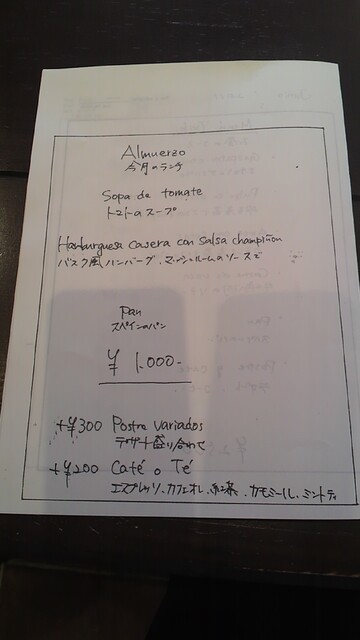 Almuerzo
今月のランチ
Sopa de tomate
トマトのスープ
Hamburguesa casera con salsa champiñon
バスク風ハンバーグ、マッシュルームのソースで
Pan
スペインのパン
¥1.000-
+¥300 Postre variados
デザート盛り合わせ
+¥200 Café o Té
エスプレッソ、カフェオレ、紅茶、カモミール、ミントティ